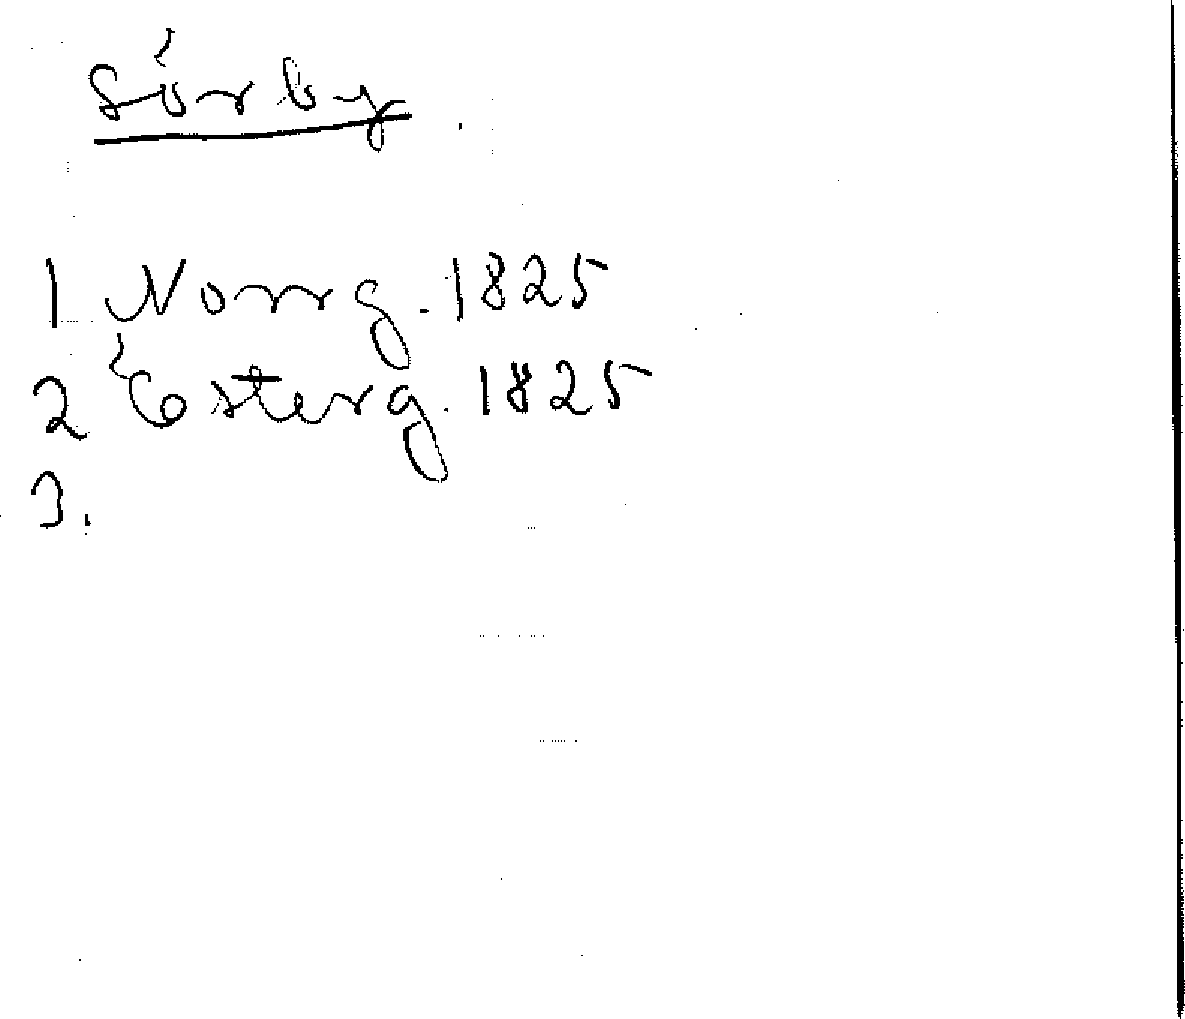 Sörby
1 Norrg. 1825
2 Österg. 1825
3.